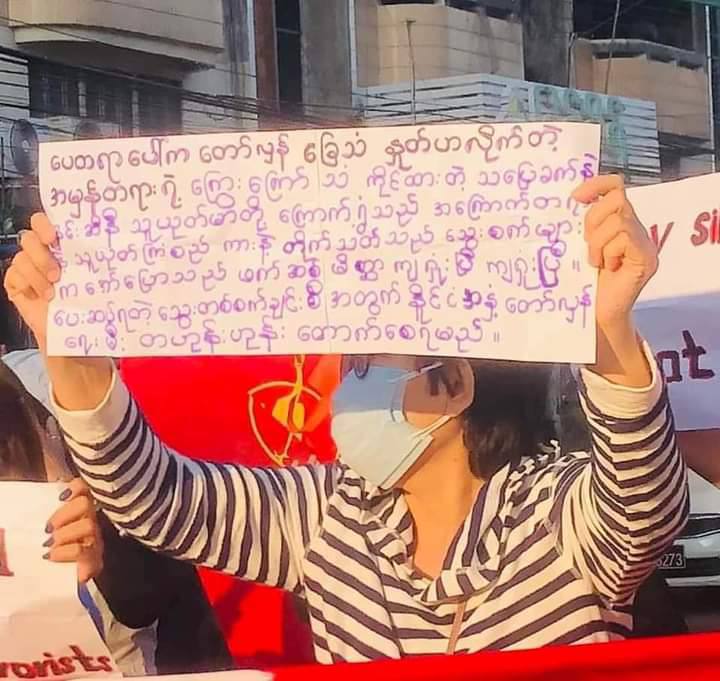 ပေတရာပေါ်က တော်လှန် ခြေသံ နှုတ်ဟလိုက်တဲ့
အမှန်တရားရဲ့ ကြွေးကြော် သံ ကိုင်ထားတဲ့ သပြေခက်နဲ့
သူယုတ်မာတို့ ကြောက်ရွံ့သည် အကြောက်တရ
သူယုတ်ကြံစည် ကာ တိုက်သတ်သည် သွေးစက်များ
က အော်ပြောသည် ဖက်ဆစ် မိစ္ဆာ ကျရှုံးပြီ ကျရှုံးပြီ ။
ပေးဆပ်ရတဲ့ သွေးတစ်စက်ချင်းစီ အတွက် နိုင်ငံအနှံ့ တော်လှန်
ရေး မီး တဟုန်းဟုန်း တောက်စေရမည် ။
y si
nt
orists
6273